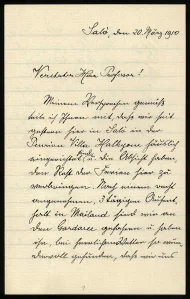 Salò, den 20. März 1910
Verehrter Herr Professor!
Meinem Versprechen gemäß
teile ich Ihnen mit, daß wir seit
gestern hier in Salò in der
Pension Villa häuslich
eingerichtet sind u. die Absicht haben,
den Rest der Ferien hier zu
verbringen. Nach einem recht
angenehmen, 3 tägigen Aufent-
halt in Mailand sind wir an
den Gardasee gefahren u. haben
ihn, bei herrlichem Wetter so
wundervoll gefunden, daß wir uns